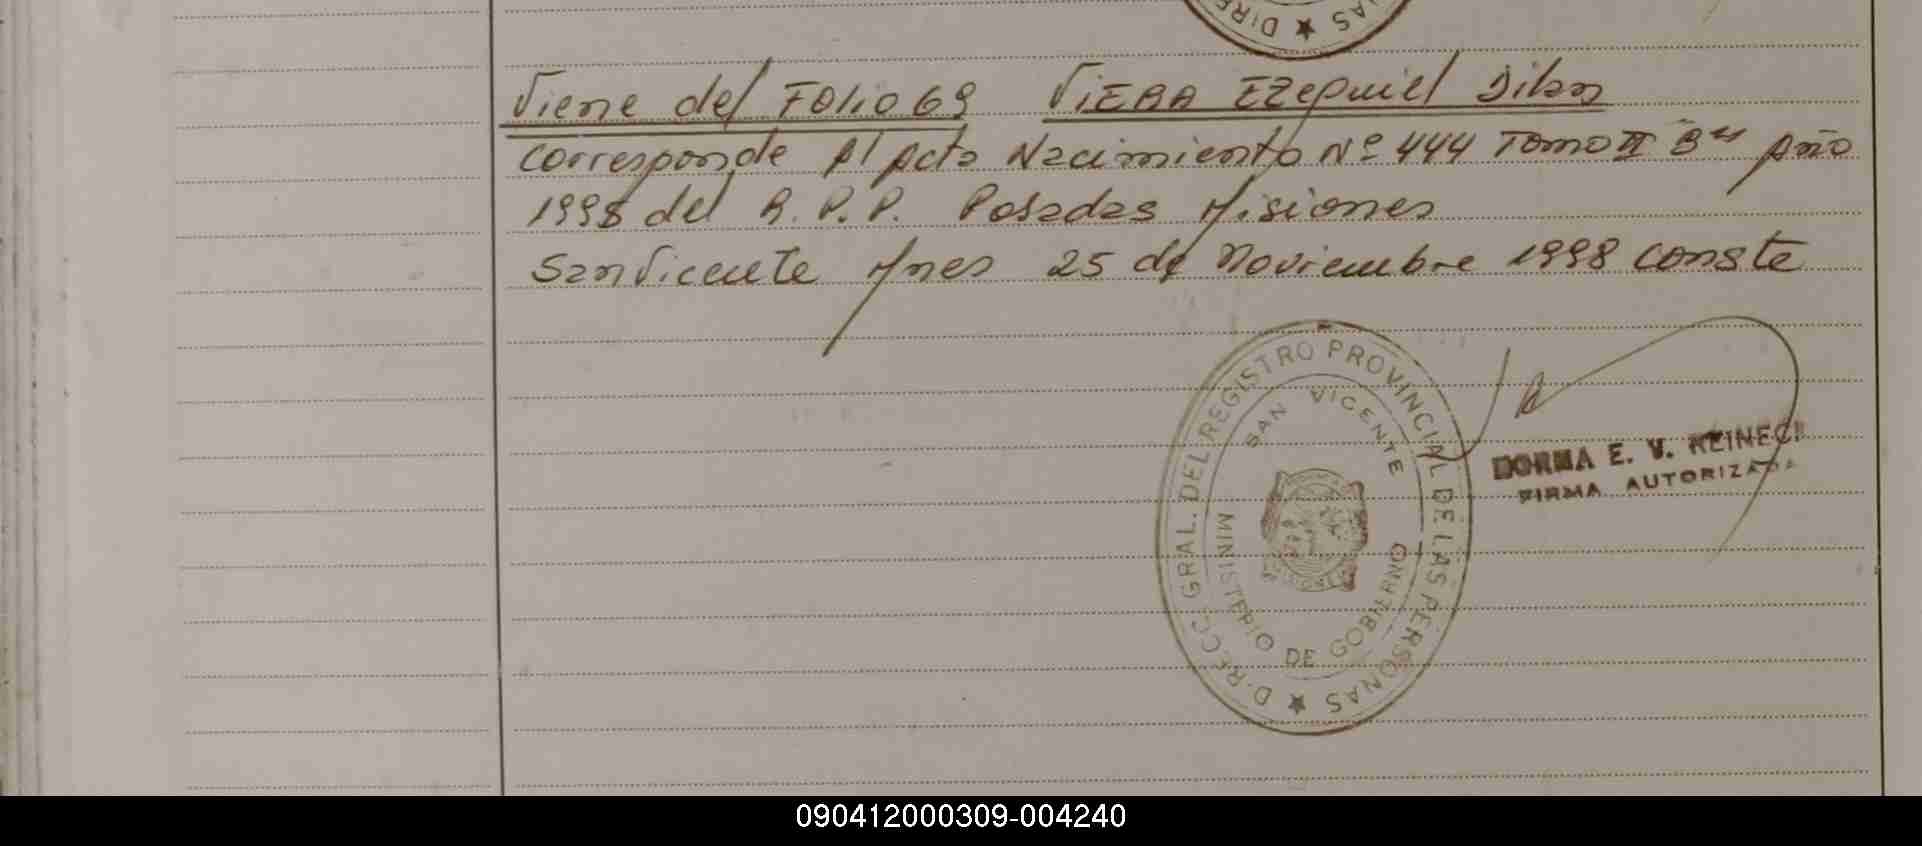 DIRE ★ NAS
Viene del Folio 69 ViERA EZequiel Dilan
corresponde Al Acta Nacimiento Nº 444 Tomo II Año
1998 del R.P.P. Posadas Misiones
San Vicente Mnes 25 de Noviembre 1998 conste
D·RECC. GRAL. DEL REGISTRO PROVINCIAL DE LAS PERSONAS ★
SAN VICENTE
MINISTERIO DE GOBIERNO
E. V. REINECK
FIRMA AUTORIZADA
090412000309-004240